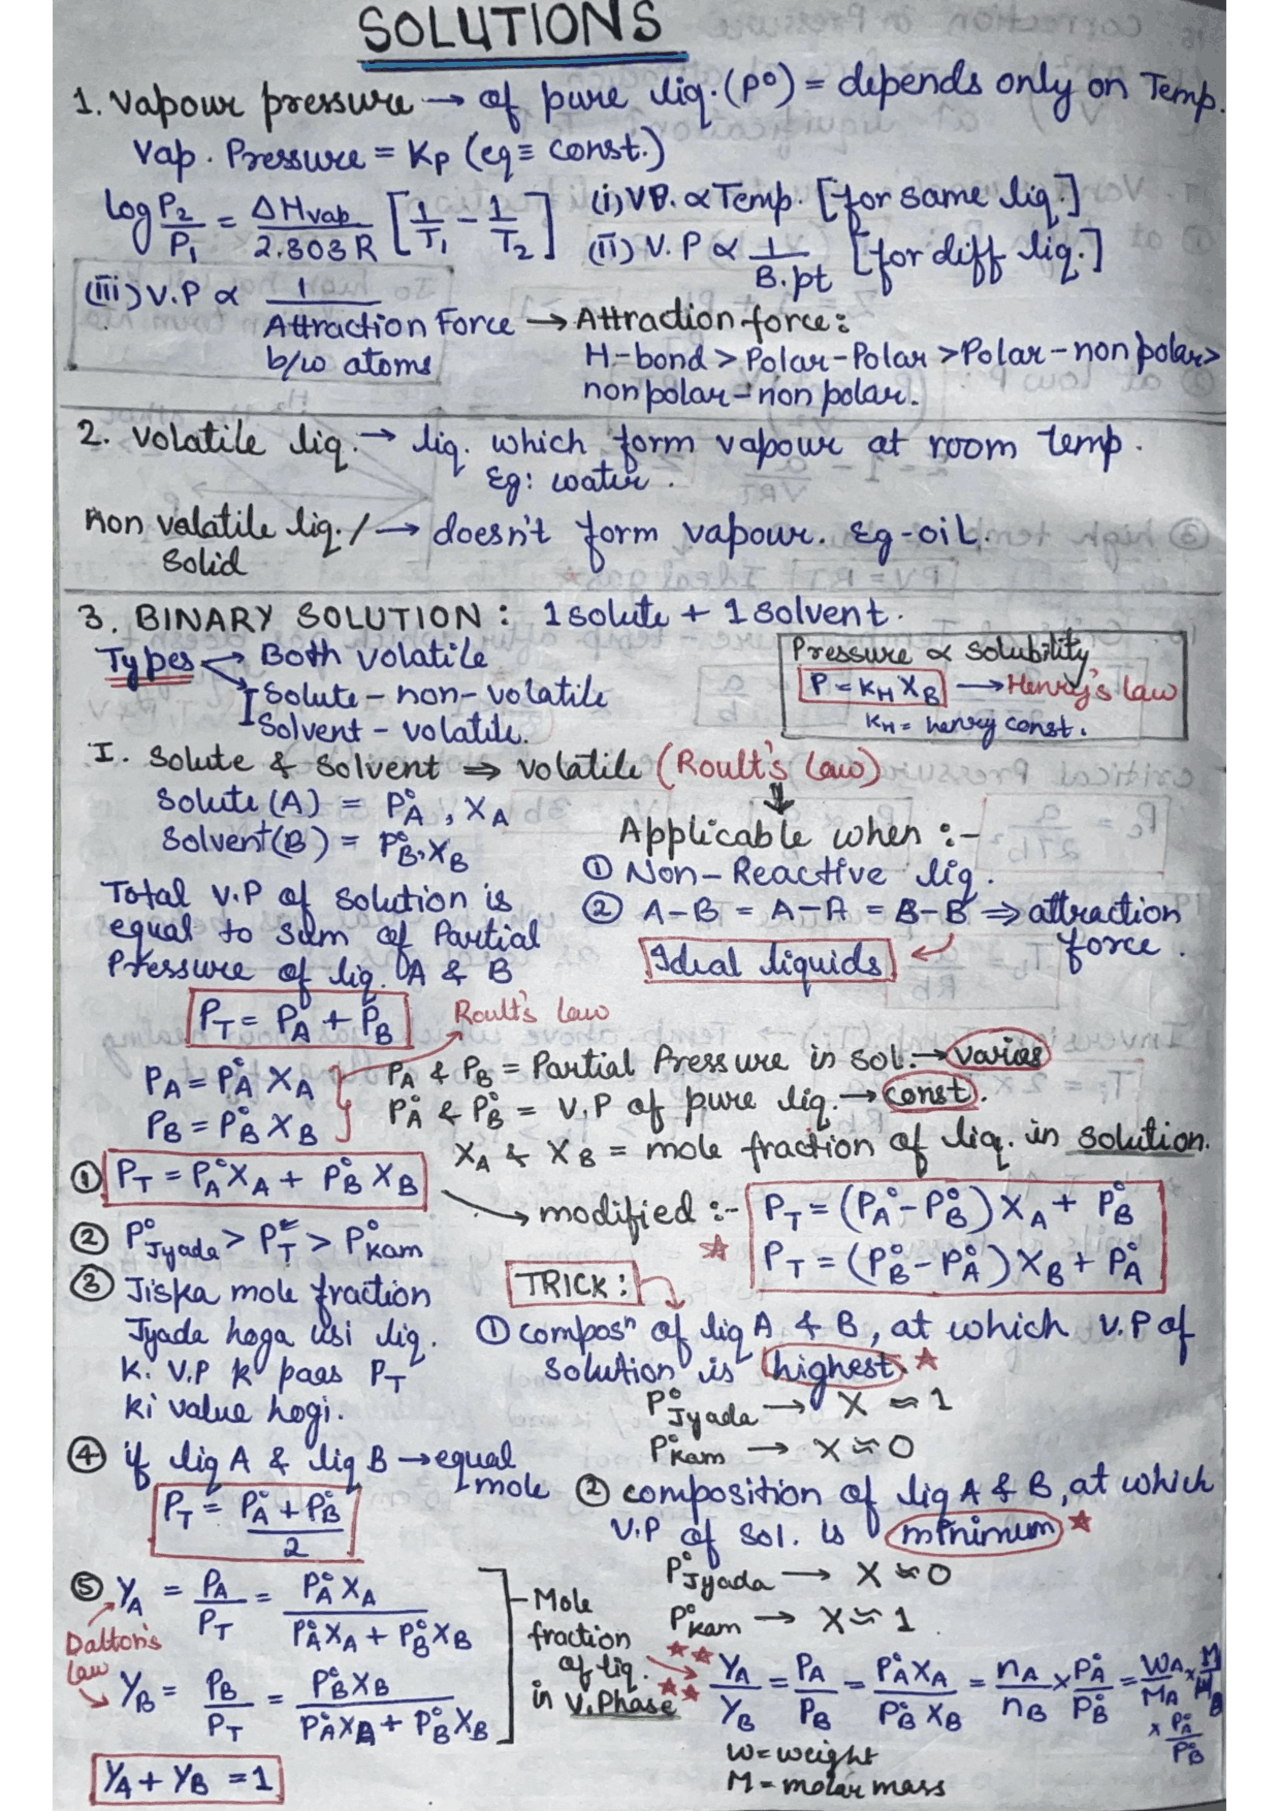 SOLUTIONS
1. Vapour pressure → of pure liq. (P°) = depends only on Temp.
Vap. Pressure = Kp (eq≡ const.)
log P₂/P₁ = ΔHvap/2.303R [1/T₁ - 1/T₂]
(i) V.P. ∝ Temp. [for same liq.]
(ii) V.P ∝ 1/B.pt [for diff liq.]
(iii) V.P ∝ 1/Attraction Force b/w atoms → Attraction force:
H-bond > Polar-Polar > Polar-non polar >
non polar-non polar.
2. Volatile liq. → liq. which form vapour at room temp.
Eg: water.
Non valatile liq./ → doesn't form vapour. Eg-oil.
Solid
3. BINARY SOLUTION: 1 solute + 1 solvent.
Types → Both volatile
Solute - non-volatile
Solvent - volatile.
Pressure ∝ solubility
P = KH XB → Henry's law
KH = henry const.
I. Solute & Solvent ⇒ volatile (Roult's law)
Solute (A) = P°A, XA
Solvent (B) = P°B, XB
Total V.P of solution is
equal to sum of Partial
Pressure of liq. A & B
Applicable when :-
① Non-Reactive liq.
② A-B = A-A = B-B ⇒ attraction
force.
Ideal liquids
PT = PA + PB
Roult's law
PA = P°A XA
PB = P°B XB
PA & PB = Partial Pressure in sol. → varies
P°A & P°B = V.P of pure liq. → const.
XA & XB = mole fraction of liq. in solution.
① PT = P°A XA + P°B XB
modified :- PT = (P°A - P°B) XA + P°B
PT = (P°B - P°A) XB + P°A
② P°Jyada > PT > P°kam
③ Jiska mole fraction
Jyada hoga usi liq.
k. V.P k paas PT
ki value hogi.
TRICK:
① composⁿ of liq A & B, at which V.P of
solution is highest.
P°Jyada → X ≈ 1
P°kam → X ≈ 0
④ if liq A & liq B → equal
mole
PT = P°A + P°B/2
② composition of liq A & B, at which
V.P of sol. is minimum
P°Jyada → X ≈ 0
P°kam → X ≈ 1
⑤ YA = PA/PT = P°A XA/P°A XA + P°B XB
Dalton's
law
YB = PB/PT = P°B XB/P°A XA + P°B XB
Mole
fraction
of liq.
in V. Phase
YA/YB = PA/PB = P°A XA/P°B XB = nA/nB × P°A/P°B = WA/MA × M/WB × P°A/P°B
W = weight
M = molar mass
YA + YB = 1